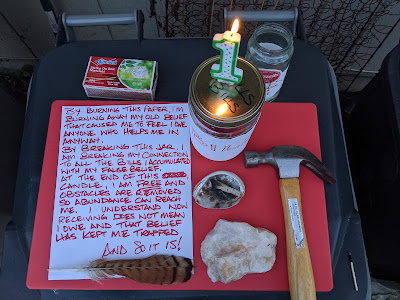 BY BURNING THIS PAPER, I'M
BURNING AWAY MY OLD BELIEF
THAT CAUSED ME TO FEEL I OWE
ANYONE WHO HELPS ME IN
ANYWAY.
BY BREAKING THIS JAR, I
AM BREAKING MY CONNECTION
TO ALL THE BILLS I ACCUMULATED
WITH MY FALSE BELIEF.
AT THE END OF THIS
CANDLE, I AM FREE AND
OBSTACLES ARE REMOVED
SO ABUNDANCE CAN REACH
ME. I UNDERSTAND NOW
RECEIVING DOES NOT MEAN
I OWE AND THAT BELIEF
HAS KEPT ME TRAPPED
AND SO IT IS!
1